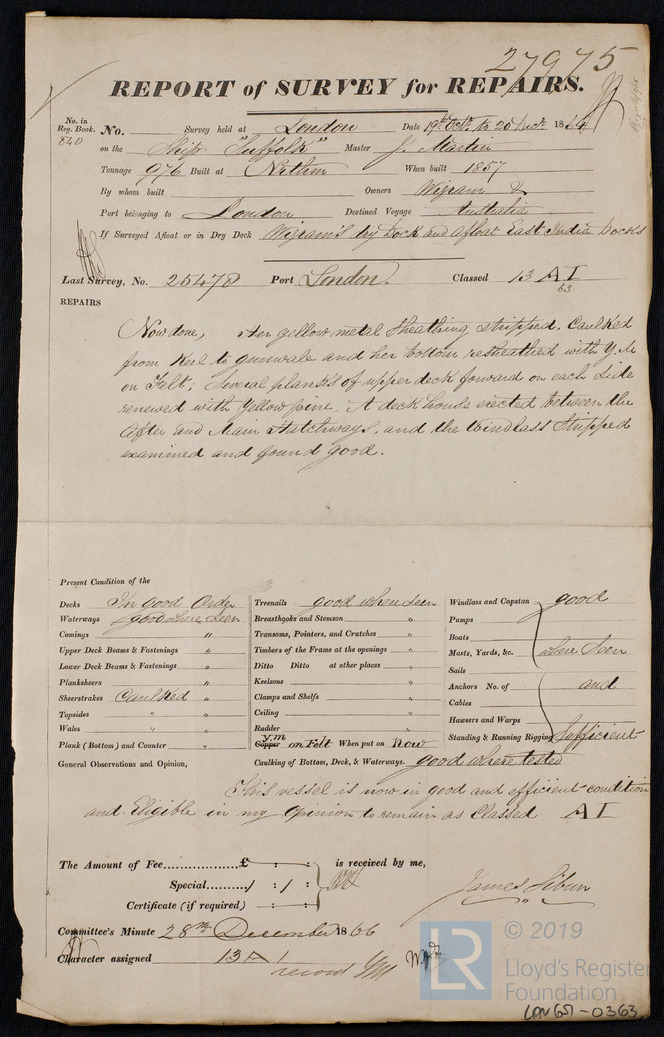 27975
REPORT of SURVEY for REPAIRS.
No. in Reg. Book. 840 No. Survey held at London Date 19th Octr. to 20 Decr. 1866
on the Ship "Suffolk" Master J. Martin
Tonnage 976 Built at When built 1857
By whom built Owners Wigram &
Port belonging to London Destined Voyage Australia
If Surveyed Afloat or in Dry Dock Wigram's Dry Dock and afloat East India Docks
Last Survey, No. 25478 Port London. Classed 13 A I
63
REPAIRS
Now done, Her yellow metal Sheathing stripped. Caulked
from Keel to gunwale and her bottom resheathed with Y. M
on Felt; Several planks of upper deck forward on each side
renewed with Yellow pine. A deck house erected between the
After and Main Hatchways, and the Windlass Stripped
examined and found good.
Present Condition of the
Decks In good Order
Waterways good where seen
Comings "
Upper Deck Beams & Fastenings "
Lower Deck Beams & Fastenings "
Planksheers "
Sheerstrakes Caulked "
Topsides " "
Wales " "
Plank (Bottom) and Counter "
General Observations and Opinion,
Treenails good where seen
Breasthooks and Stemson "
Transoms, Pointers, and Crutches "
Timbers of the Frame at the openings "
Ditto Ditto at other places "
Keelsons "
Clamps and Shelfs "
Ceiling "
Rudder "
Y.M
Copper on Felt When put on Now
Caulking of Bottom, Deck, & Waterways. good where tested
Windlass and Capstan good
Pumps
Boats
Masts, Yards, &c. where seen
Sails
Anchors No. of and
Cables
Hawsers and Warps
Standing & Running Rigging Sufficient
This vessel is now in good and efficient condition
and Eligible in my Opinion to remain as Classed A I
The Amount of Fee £ : : is received by me,
Special / : / :
Certificate (if required) : :
James Sibun
Committee's Minute 28th December 1866
Character assigned 13 A 1
record
© 2019
LR
Lloyd's Register
Foundation
LON657-0363